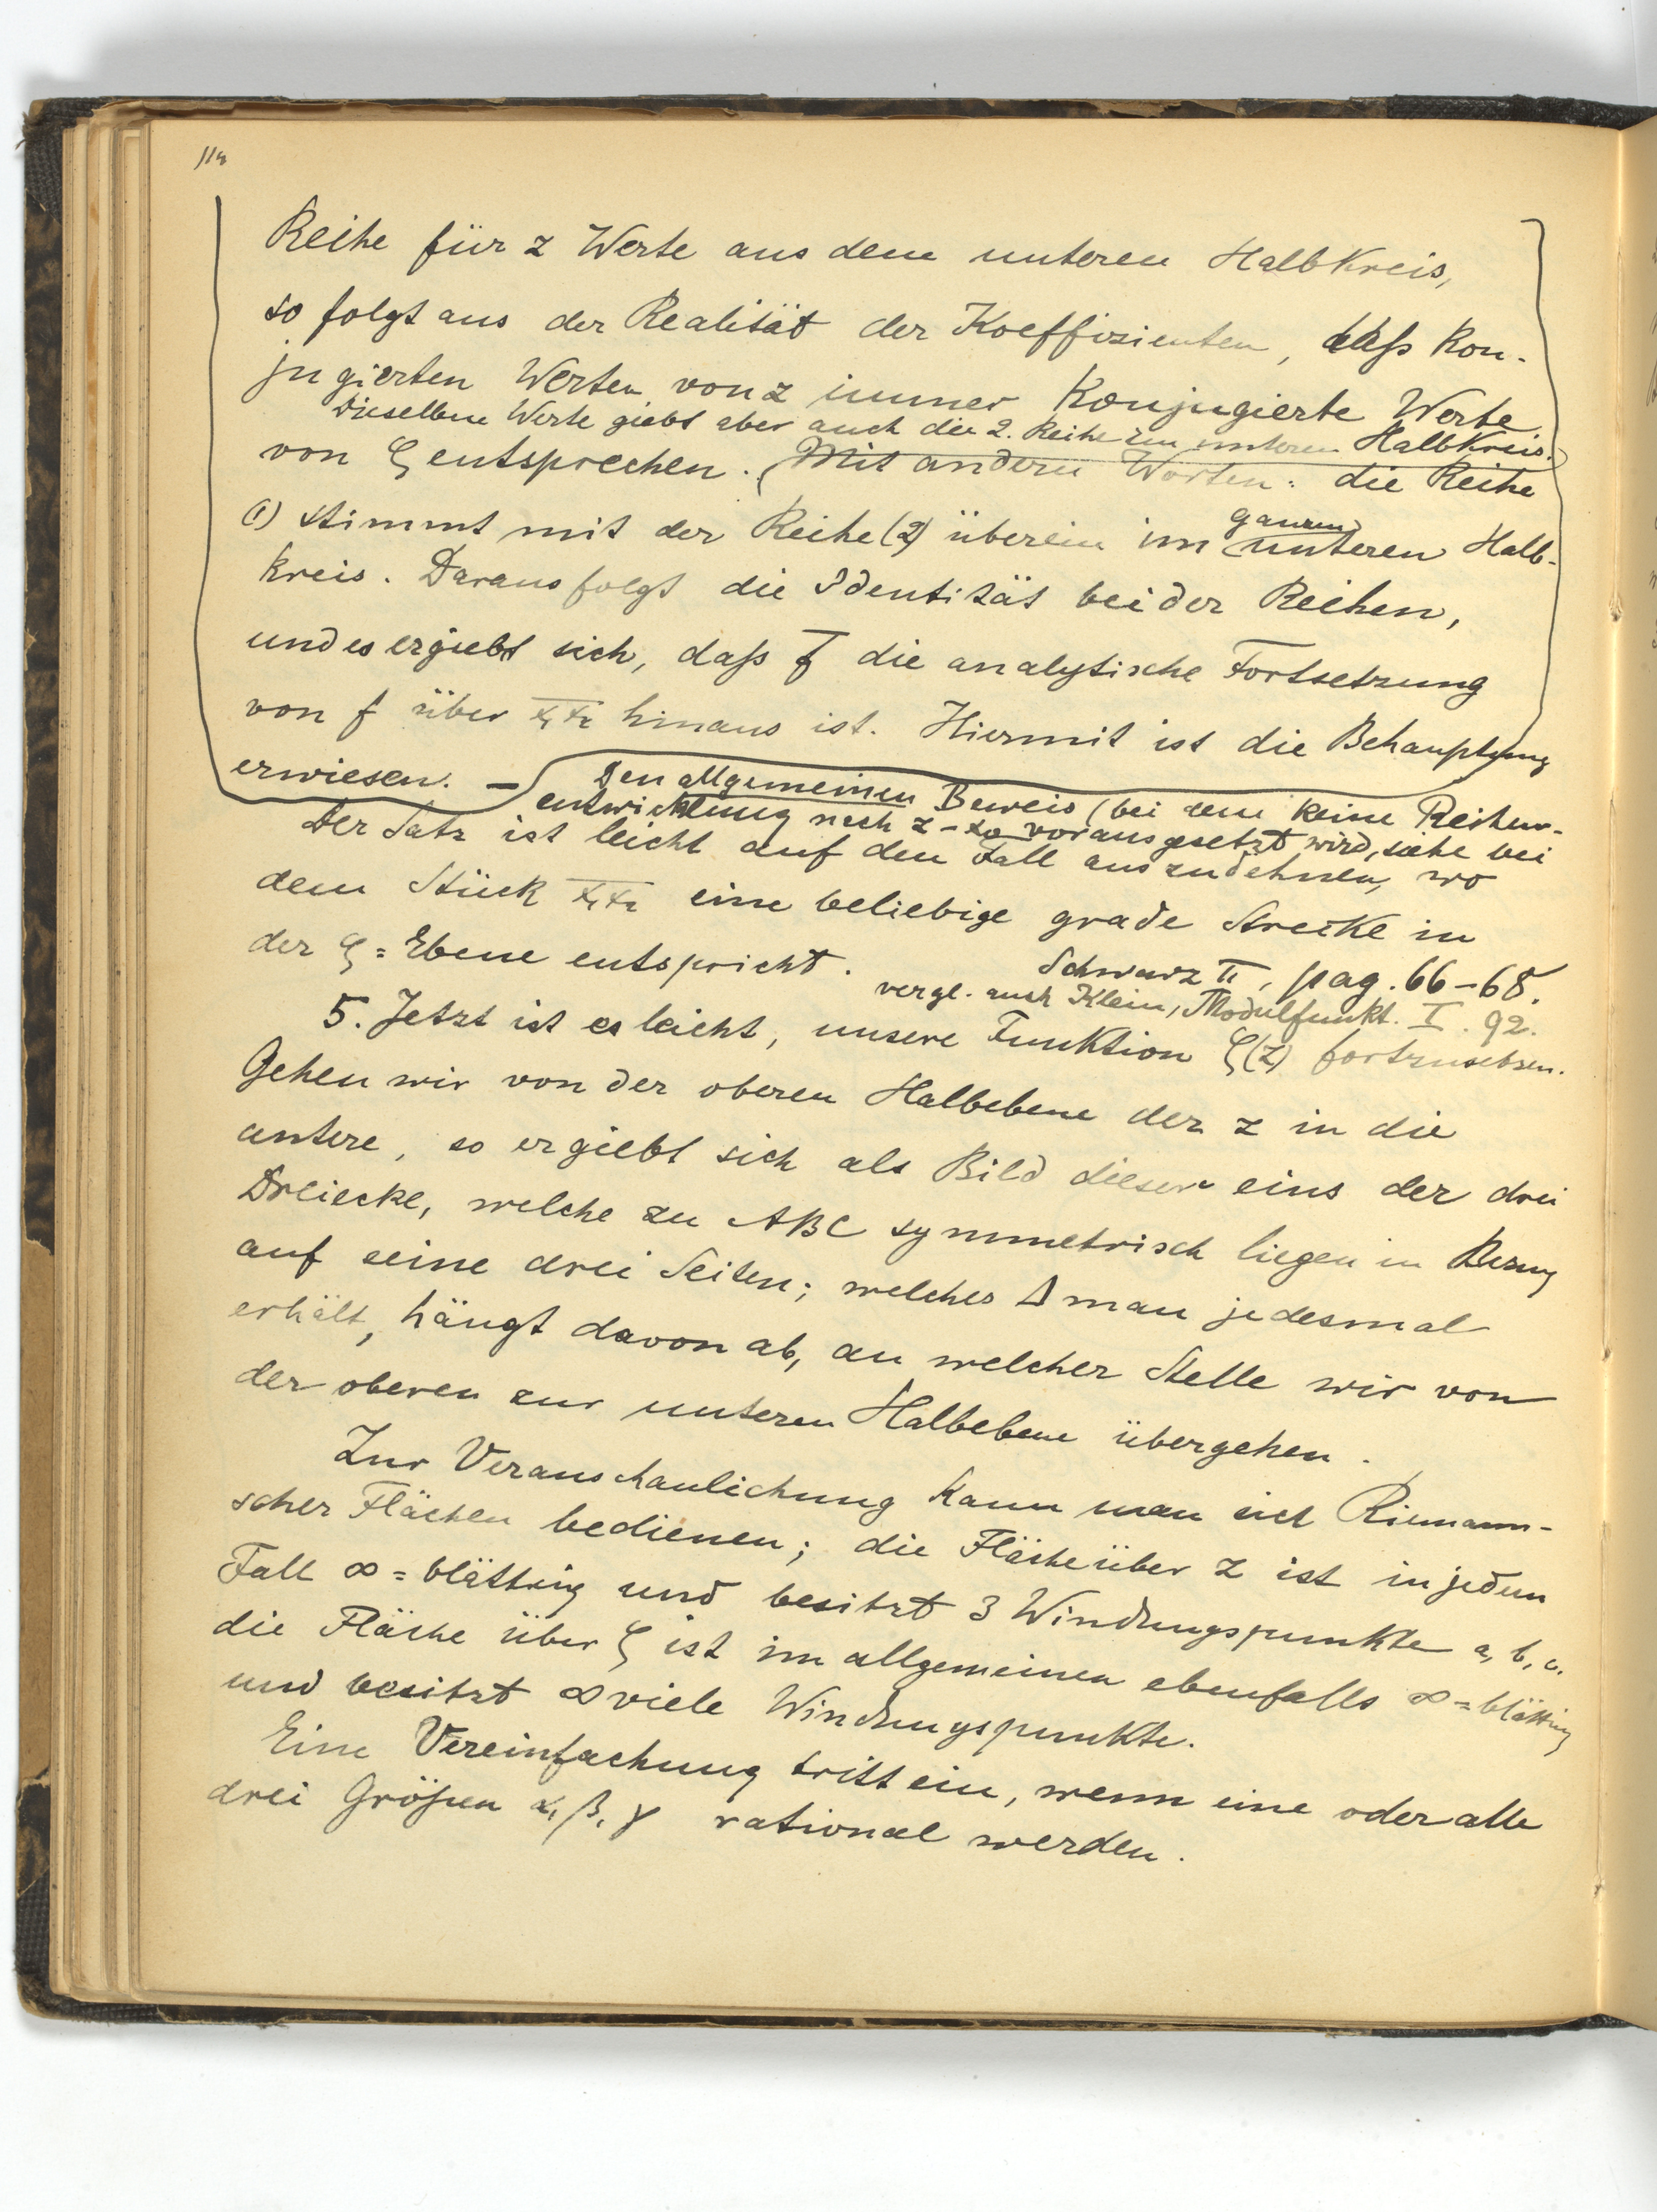 114
Reihe für z Werte aus dem unteren Halbkreis,
so folgt aus der Realität der Koeffizienten, daß kon-
jugierten Werten von z immer konjugierte Werte
Dieselben Werte giebt aber auch die 2. Reihe im unteren Halbkreis.
von ζ entsprechen. (Mit andern Worten: die Reihe
(1) stimmt mit der Reihe (2) überein im unteren Halb-
ganzen
kreis. Daraus folgt die Identität beider Reihen,
und es ergiebt sich, daß f̄ die analytische Fortsetzung
von f über x₁x₂ hinaus ist. Hiermit ist die Behauptung
erwiesen. — Den allgemeinen Beweis (bei dem keine Reihen-
entwicklung nach z-z₀ vorausgesetzt wird, siehe bei
Der Satz ist leicht auf den Fall auszudehnen, wo
dem Stück x₁x₂ eine beliebige grade Strecke in
der ζ=Ebene entspricht.
Schwarz II, pag. 66-68.
vergl. auch Klein, Modulfunkt. I. 92.
5. Jetzt ist es leicht, unsere Funktion ζ(z) fortzusetzen.
Gehen wir von der oberen Halbebene der z in die
untere, so ergiebt sich als Bild dieser eins der drei
Dreiecke, welche zu ABC symmetrisch liegen in Bezug
auf seine drei Seiten; welches Δ man jedesmal
erhält, hängt davon ab, an welcher Stelle wir von
der oberen zur unteren Halbebene übergehen.
Zur Veranschaulichung kann man sich Riemann-
scher Flächen bedienen; die Fläche über z ist in jedem
Fall ∞=blättrig und besitzt 3 Windungspunkte a, b, c.
die Fläche über ζ ist im allgemeinen ebenfalls ∞=blättrig
und besitzt ∞ viele Windungspunkte.
Eine Vereinfachung tritt ein, wenn eine oder alle
drei Größen α, β, γ rational werden.